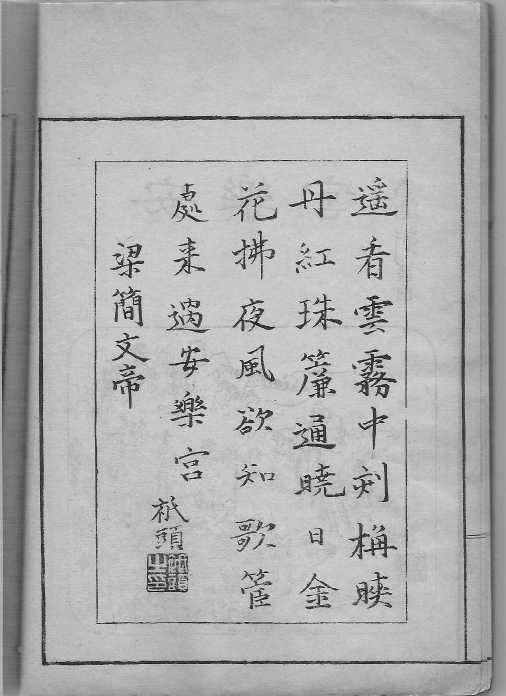 遥看雲霧中刻桷映
丹紅珠簾通曉日金
花拂夜風欲知歌管
處来過安樂宮
梁簡文帝
祇頭